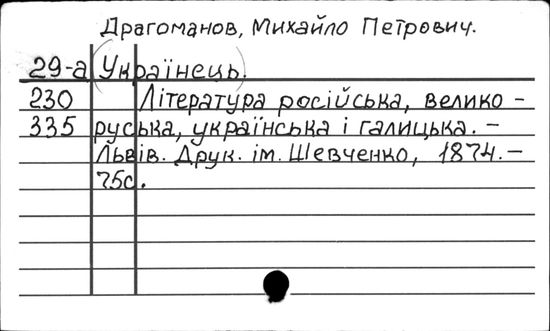 Драгоманов, Михайло Петрович.
29-а (Українець).
230 Література російська, велико-
335 руська, українська і галицька. -
Львів. Друк. ім. Шевченко, 1874. -
75с.